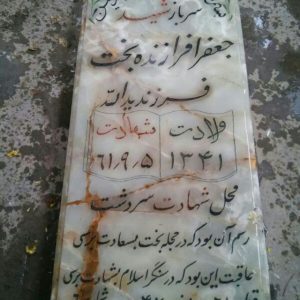 سرباز شهید
جعفر افرازنده بخت
فرزند یدالله
ولادت شهادت
۱۳۴۱ ۶۱/۹/۵
محل شهادت سردشت
رسم آن بود که در حجله بخت بسعادت برسی
عاقبت این بود که در سنگر اسلام بشهادت برسی